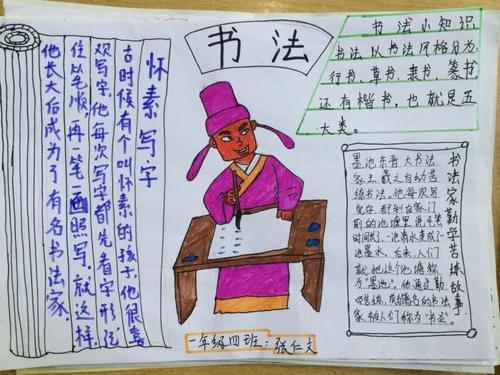 书法
怀素写字
古时候有个叫怀素的孩子,他很喜
欢写字,他每次写字都先看字形,记
住笔顺,再一笔一画照写,就这样,
他长大后成为了有名书法家。
书法小知识
书法以书法风格分为:
行书、草书、隶书、篆书
还有楷书,也就是五
大类。
书法家勤学苦练故事
墨池东晋大书法
家王羲之自幼苦
练书法。他每次写
完字,都到自家门
前的池塘里洗毛笔
时间长了,一池清水变成了一
池墨水。后来,人们
就把这个池塘称
为“墨池”。他通过勤
学苦练,成为著名的书法
家,被人们称为“书圣”
一年级四班:张仁文